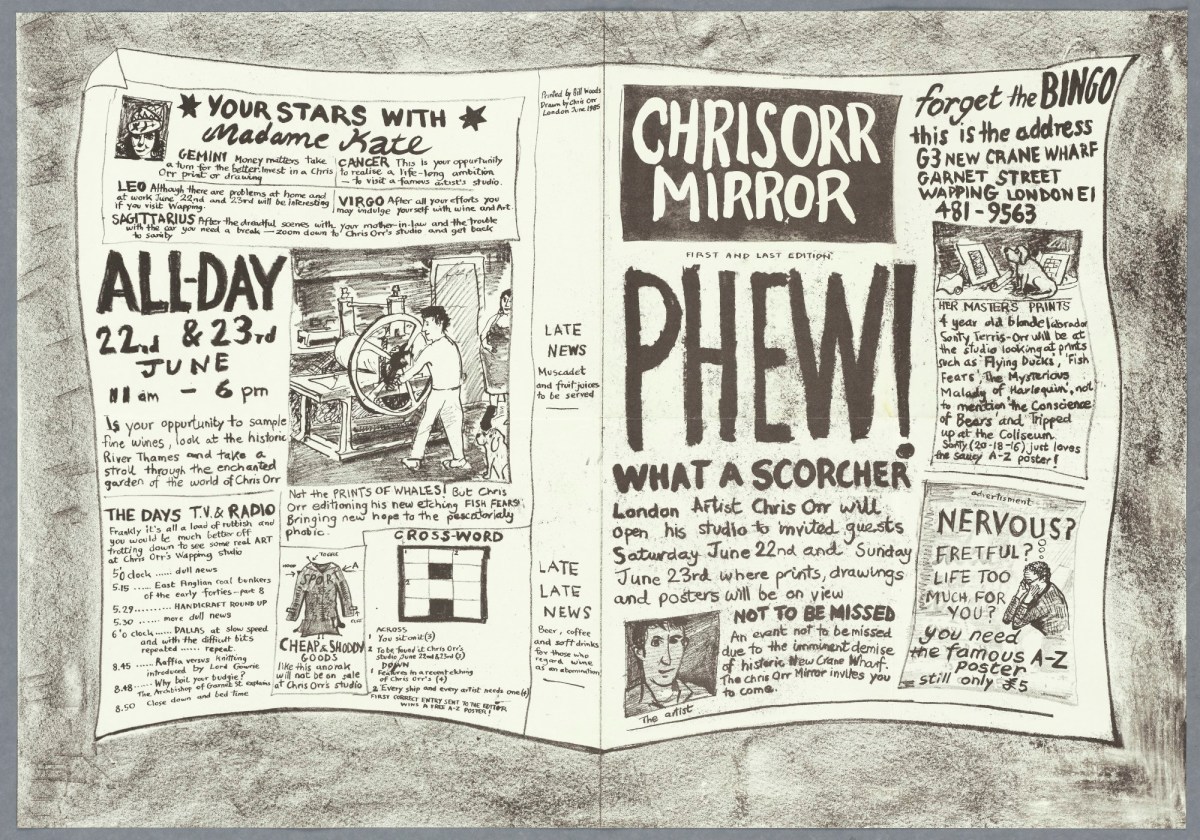 ★ YOUR STARS WITH ★
Madame Kate
GEMINI Money matters take
a turn for the better. Invest in a Chris
Orr print or drawing
CANCER This is your opportunity
to realise a life-long ambition
— to visit a famous artist's studio.
LEO Although there are problems at home and
at work June 22nd and 23rd will be interesting
if you visit Wapping.
VIRGO After all your efforts you
may indulge yourself with wine and Art.
SAGITTARIUS After the dreadful scenes with your mother-in-law and the trouble
with the car you need a break — zoom down to Chris Orr's studio and get back
to sanity
ALL-DAY
22nd & 23rd
JUNE
11 am - 6 pm
Is your opportunity to sample
fine wines, look at the historic
River Thames and take a
stroll through the enchanted
garden of the world of Chris Orr
Not the PRINTS OF WHALES! But Chris
Orr editioning his new etching FISH FEARS.
Bringing new hope to the pescatorialy
phobic.
THE DAYS T.V. & RADIO
Frankly it's all a load of rubbish and
you would be much better off
trotting down to see some real ART
at Chris Orr's Wapping studio
5'o clock ..... dull news
5.15 ..... East Anglian coal bunkers
of the early forties - part 8
5.29 .......... HANDICRAFT ROUND UP
5.30 ....... more dull news
6'o clock ..... DALLAS at slow speed
and with the difficult bits
repeated ...... repeat.
8.45 ..... Raffia versus Knitting
introduced by Lord Gowrie
8.48 ..... Why boil your budgie?
The Archbishop of Garnet St. explains
8.50 Close down and bed time
SPOR
A
CHEAP & SHODDY
GOODS
like this anorak
will not be on sale
at Chris Orr's studio
CROSS-WORD
1
2
2
ACROSS
1 You sit on it (3)
2 To be found at Chris Orr's
studio June 22nd & 23rd (3)
DOWN
1 Features in a recent etching
of Chris Orr's (4)
2 Every ship and every artist needs one (4)
FIRST CORRECT ENTRY SENT TO THE EDITOR
WINS A FREE A-Z POSTER!
Printed by Bill Woods
Drawn by Chris Orr
London June 1985
LATE
NEWS
Muscadet
and fruit juices
to be served
LATE
LATE
NEWS
Beer, coffee
and soft drinks
for those who
regard wine
as an abomination
CHRIS ORR
MIRROR
FIRST AND LAST EDITION
PHEW!
WHAT A SCORCHER
London Artist Chris Orr will
open his studio to invited guests
Saturday June 22nd and Sunday
June 23rd where prints, drawings
and posters will be on view
The artist
NOT TO BE MISSED
An event not to be missed
due to the imminent demise
of historic New Crane Wharf.
The Chris Orr Mirror invites you
to come.
forget the BINGO
this is the address
G3 NEW CRANE WHARF
GARNET STREET
WAPPING LONDON E1
481-9563
HER MASTER'S PRINTS
4 year old blonde labrador
Santy Terris-Orr will be at
the studio looking at prints
such as 'Flying Ducks', 'Fish
Fears', 'The Mysterious
Malady of Harlequin', not
to mention 'the Conscience
of Bears' and 'Tripped
up at the Coliseum.
Santy (20-18-16) just loves
the saucy A-Z poster!
advertisment
NERVOUS?
FRETFUL?
LIFE TOO
MUCH FOR
YOU?
you need
the famous A-Z
poster
still only £5